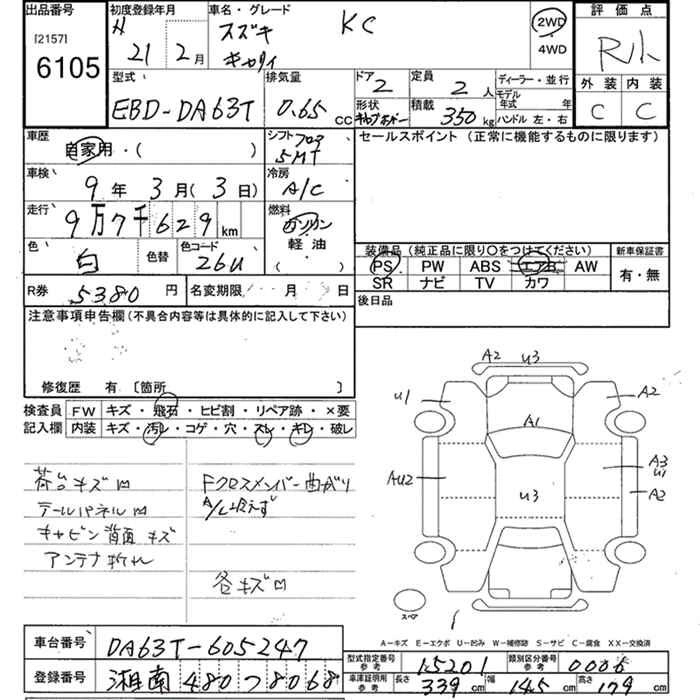 出品番号 初度登録年月 車名・グレード 評価点
[2157] H スズキ KC 2WD
6105 21 2月 キャリイ 4WD R小
型式 排気量 ドア 定員 ディーラー・並行 外装 内装
2 2人 モデル年式 年
EBD-DA63T 0.65 CC 形状 積載 350 kg ハンドル 左・右 C C
車歴 シフト フロア セールスポイント (正常に機能するものに限ります)
自家用・( ) 5MT
車検 冷房
9年 3月( 3日) A/C
走行 燃料
9万7千629km ガソリン
色 色替 色コード 軽油 装備品 (純正品に限り○をつけてください) 新車保証書
白 26U ( ) PS PW ABS エアB AW 有・無
SR ナビ TV カワ
R券 5380円 名変期限 月 日 後日品
注意事項申告欄(不具合内容等は具体的に記入して下さい)
修復歴 有 [箇所 ]
検査員 FW キズ・飛石・ヒビ割・リペア跡・×要
記入欄 内装 キズ・汚レ・コゲ・穴・スレ・キレ・破レ
荷台キズ凹
テールパネル凹
キャビン背面キズ
アンテナ折れ
Fクロスメンバー曲がり
A/C冷えず
各キズ凹
A2 U3
U1 A2
A1
AU2 A3
U1
U3 A2
スペア
A-キズ E-エクボ U-凹み W-補修跡 S-サビ C-腐食 XX-交換済
車台番号 DA63T-605247 型式指定番号 参考 15201 類別区分番号 参考 0006
登録番号 湘南 480 つ 8068 車庫証明用 参考 長さ 339cm 幅 145cm 高さ 179cm